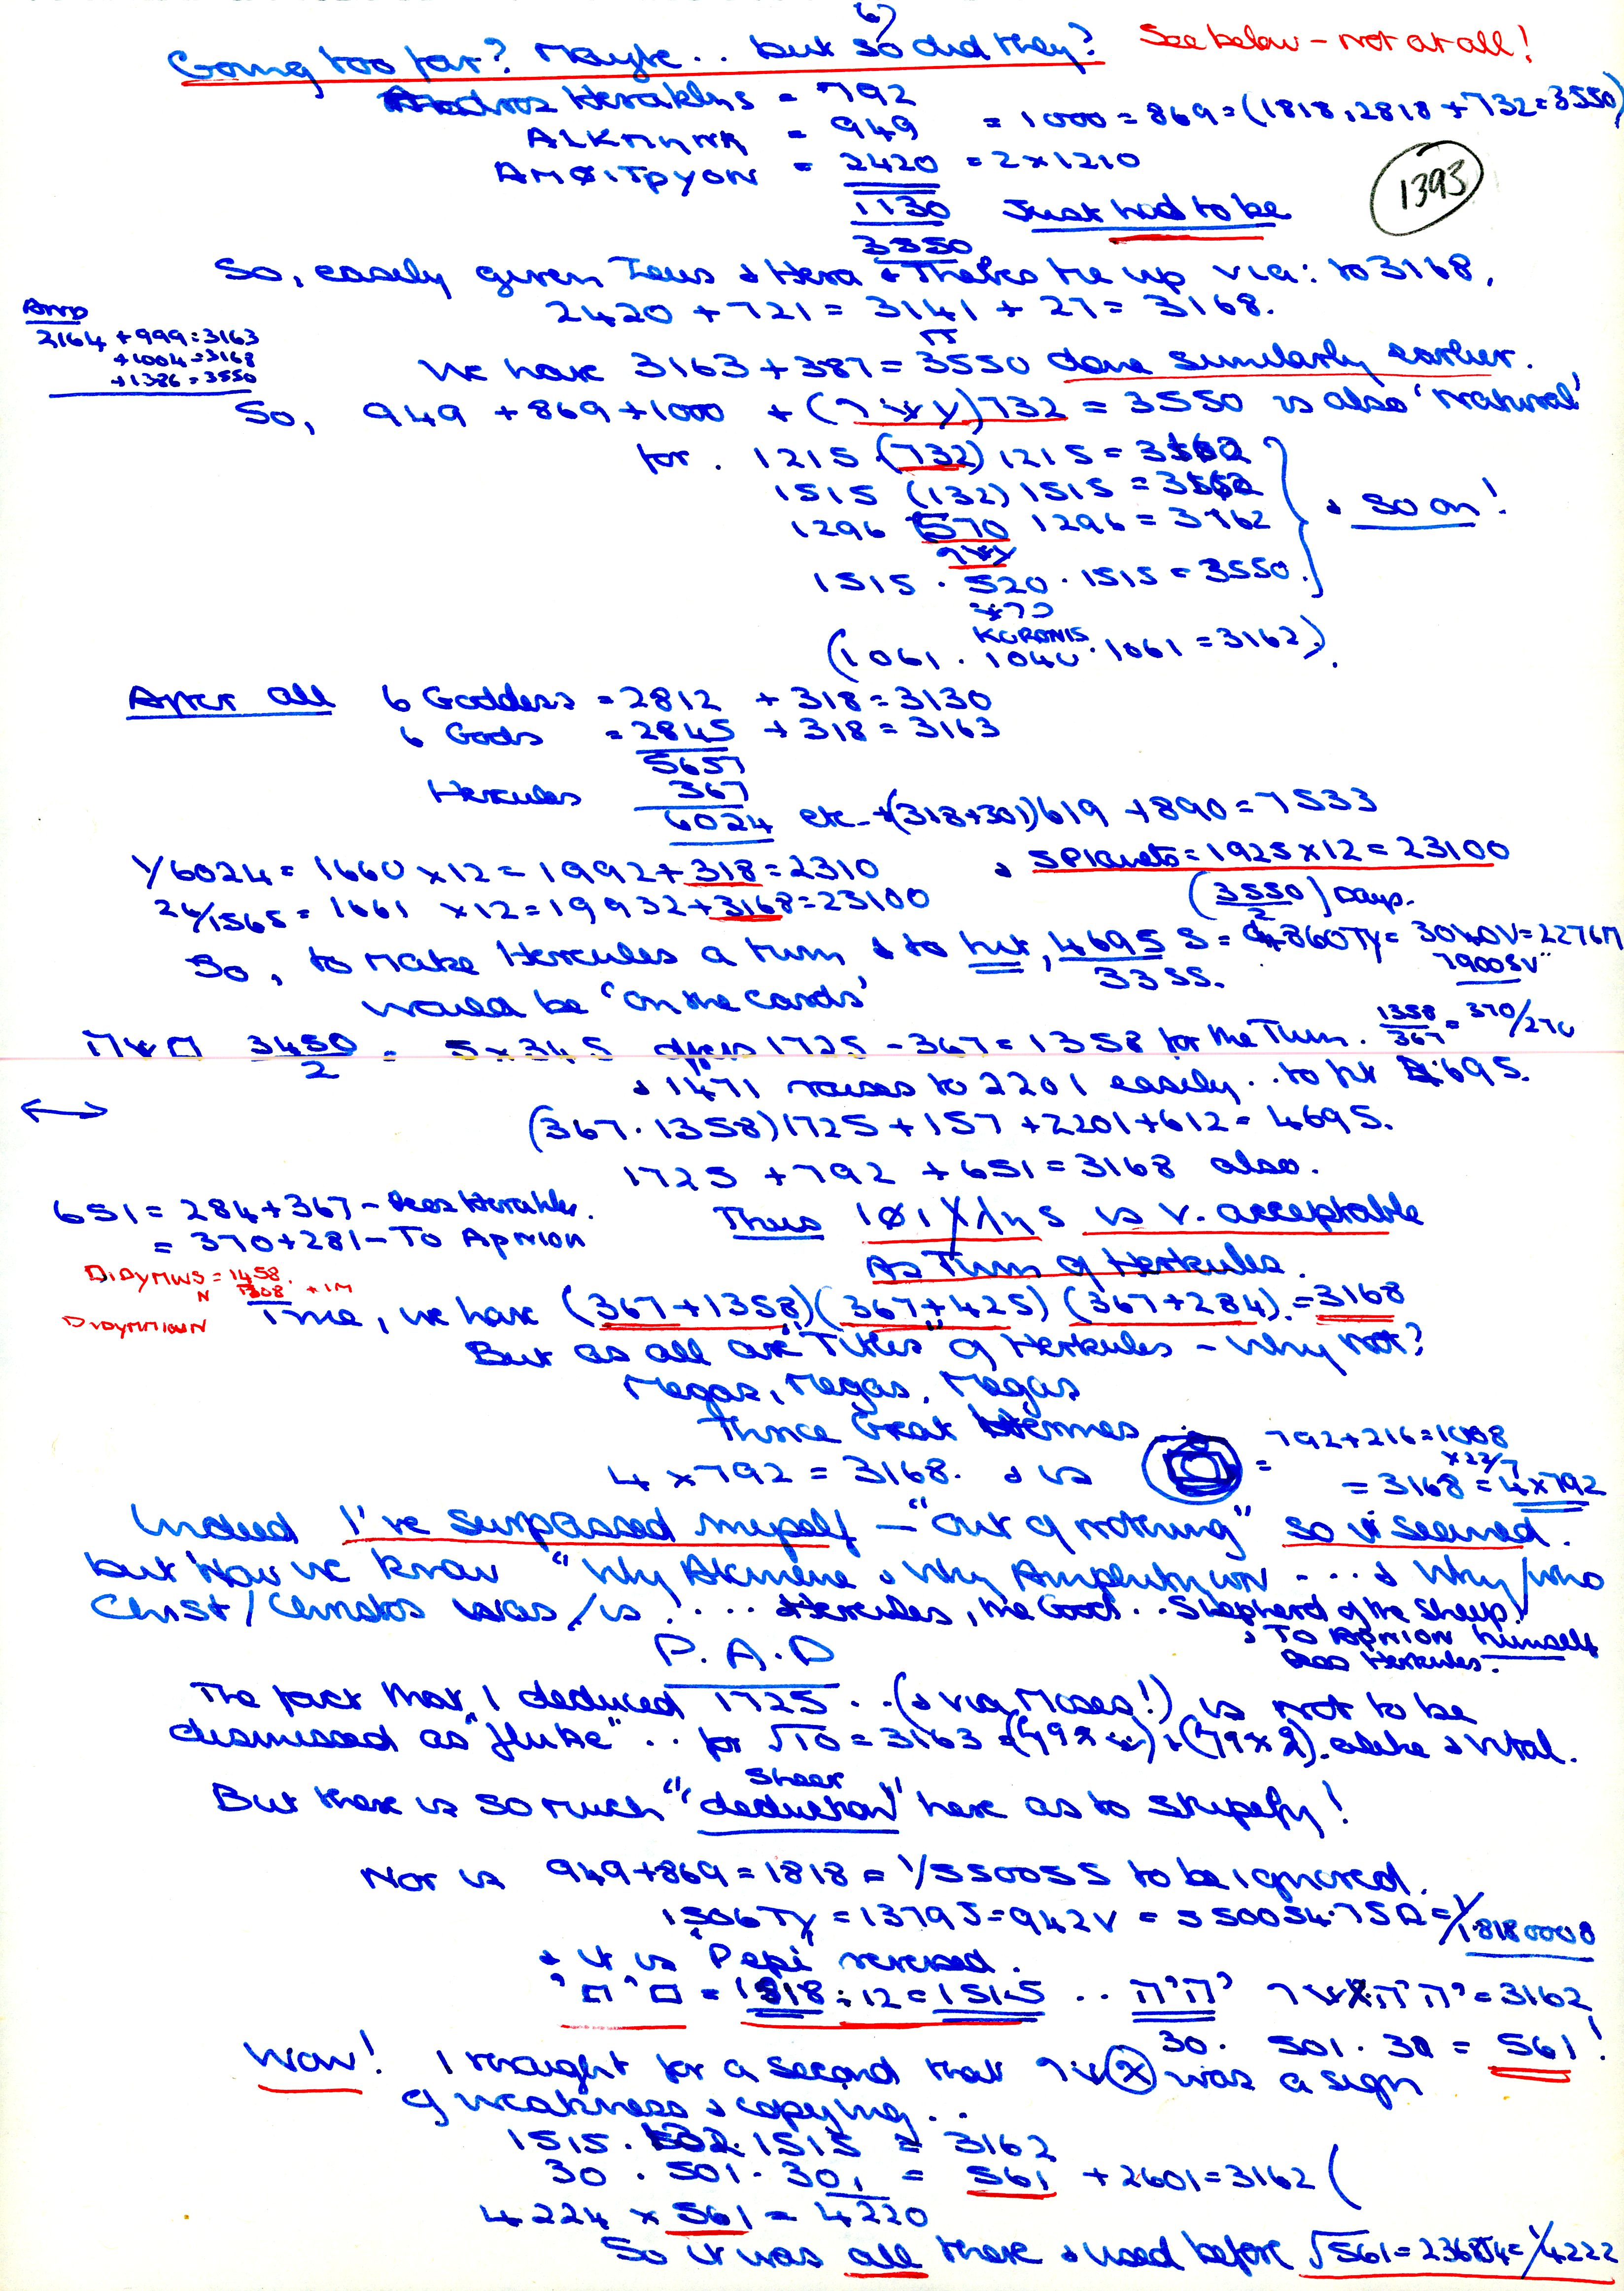 6)
Going too far? Maybe.. but so did they? See below - not at all!
Heraklhs = 792
ALKMHNH = 949 = 1000 = 869 = (1818, 2818 + 732 = 3550)
AMΦiTPYON = 2420 = 2 x 1210
1130 Just had to be
3550
1393
So, easily given Zeus & Hera & tie up via: to 3168,
2420 + 721 = 3141 + 27 = 3168.
π
And
2164 + 999 = 3163
+ 1004 = 3168
+ 1386 = 3550
We have 3163 + 387 = 3550 done similarly earlier.
So, 949 + 869 + 1000 + ( ) 732 = 3550 is also 'natural'
for . 1215 (732) 1215 = 3162
1515 (132) 1515 = 3162
1296 570 1296 = 3162
& so on!
1515 . 520 . 1515 = 3550.
KORONIS
(1061 . 1040 . 1061 = 3162).
After all 6 Goddess = 2812 + 318 = 3130
6 Gods = 2845 + 318 = 3163
5657
Hercules 367
6024 etc + (318+301) 619 + 890 = 7533
1/6024 = 1660 x 12 = 1992 + 318 = 2310 & 5 Planets = 1925 x 12 = 23100
26/1565 = 1661 x 12 = 19932 + 3168 = 23100 (3550/2) Days.
So, to make Hercules a turn & to hit, 4695 S = 4860Ty = 3040V = 2276M
33SS. 7900SV
would be 'on the cards'
3450/2 = 5 x 345 1725 - 367 = 1358 for the Turn. 1358/367 = 370/270
& 1471 raises to 2201 easily .. to hit 4695.
(367 . 1358) 1725 + 157 + 2201 + 612 = 4695.
1725 + 792 + 651 = 3168 also.
651 = 284 + 367 -
= 370 + 281 - To Arnion
Thus is v. acceptable
As Turn of Herkules.
DiDyMWS = 1458.
N 1308 + 1M
True, we have (367 + 1358) (367 + 425) (367 + 284) = 3168
But as all are "Titles" of Herkules - Why not?
Megas, Megas, Megas
Thrice Great Hermes
4 x 792 = 3168. & is = 792 + 216 = 1008
x 22/7
= 3168 = 4 x 792
Indeed I've surpassed myself - "out of nothing" so it seemed.
but Now we know "Why Alkmene & Why Amphitryon .... & Why/who
Christ/Chrestos was/is! .... Hercules, the Good .. Shepherd of the Sheep!
& To Arnion himself
Herkules.
P.A.D
The fact that I deduced 1725 .. (& via Moses!) is not to be
dismissed as "fluke" .. for √10 = 3163 alike & vital.
But there is so much "sheer deduction" here as to stupefy!
Nor is 949 + 869 = 1818 = 1/550055 to be ignored.
1506Ty = 1379S = 942V = 550054.75Ω = 1/1.8180008
& it is 'Pepi' reversed.
= 1818 ÷ 12 = 1515 .. = 3162
30 . 501 . 30 = 561!
Wow! I thought for a second that was a sign
of weakness & copying ..
1515 . 132 . 1515 = 3162
30 . 501 . 30 = 561 + 2601 = 3162 (
4224 x 561 = 4220
So it was all there & used before √561 = 23684 = 1/4222